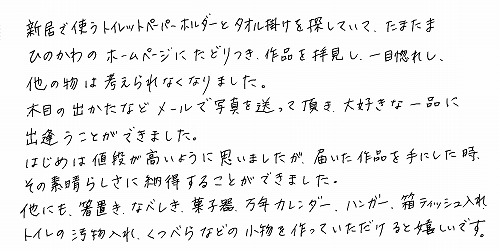 新居で使うトイレットペーパーホルダーとタオル掛けを探していて、たまたま
ひのかわのホームページにたどりつき、作品を拝見し、一目惚れし、
他の物は考えられなくなりました。
木目の出かたなどメールで写真を送って頂き、大好きな一品に
出逢うことができました。
はじめは値段が高いように思いましたが、届いた作品を手にした時、
その素晴らしさに納得することができました。
他にも、箸置き、なべしき、菓子器、万年カレンダー、ハンガー、箱ティッシュ入れ
トイレの汚物入れ、くつべらなどの小物を作っていただけると嬉しいです。